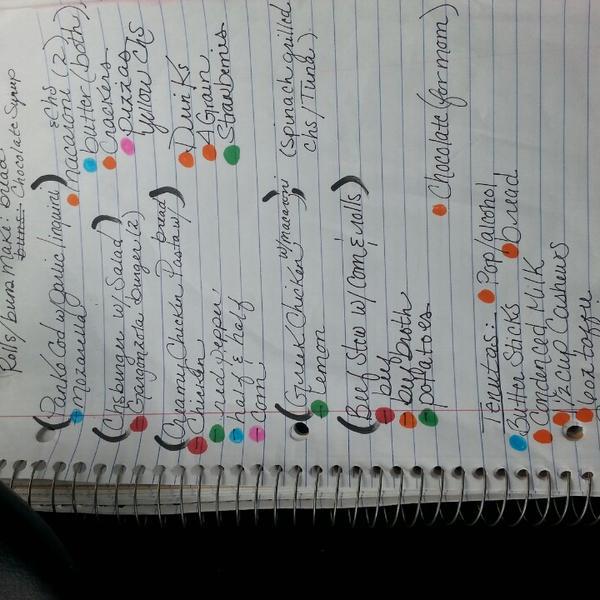 Rolls/buns Make: bread
Chocolate Syrup
(Panko Cod w/garlic linguini)
Mozarella
macaroni & chs (2)
butter (both)
(Chsburger w/ Salad)
Gorgonzola burger (2)
Crackers
Pizzas
yellow chs
(Creamy Chicken Pasta w/ bread)
Chicken
red pepper
half & half
corn
Drinks
4 Grain
Strawberries
(Greek Chicken w/macaroni)
Lemon
(spinach grilled
chs/Tuna)
(Beef Stew w/ Corn & rolls)
beef
beef broth
potatoes
Chocolate (for mom)
Pop/alcohol
Butter Sticks
bread
Condensed Milk
1/2 cup Cashews